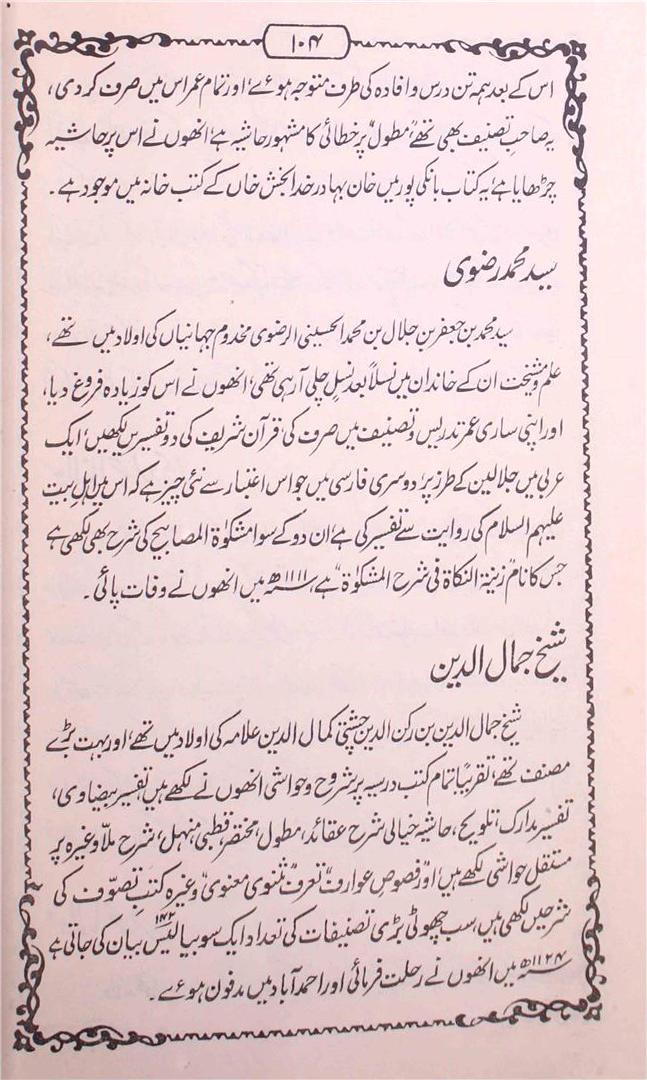 ۱۰۴
اس کے بعد ہمہ تن درس و افادہ کی طرف متوجہ ہوۓ، اور تمام عمر اس میں صرف کر دی،
یہ صاحب تصنیف بھی تھے، مطول پر خطائی کا مشہور حاشیہ ہے، انھوں نے اس پر حاشیہ
چڑھایا ہے، یہ کتاب بانکی پور میں خان بہادر خدا بخش خاں کے کتب خانہ میں موجود ہے۔
سید محمد رضوی
سید محمد بن جعفر بن جلال بن محمد الحسینی الرضوی مخدوم جہانیاں کی اولاد میں تھے،
علم و مشیخت ان کے خاندان میں نسلاً بعد نسلٍ چلی آرہی تھی، انھوں نے اس کو زیادہ فروغ دیا،
اور اپنی ساری عمر تدریس و تصنیف میں صرف کی، قرآن شریف کی دو تفسیریں لکھیں، ایک
عربی میں جلالین کے طرز پر، دوسری فارسی میں جو اس اعتبار سے نئی چیز ہے کہ اس میں اہل بیت
علیہم السلام کی روایت سے تفسیر کی ہے، ان دو کے سوا مشکوٰۃ المصابیح کی شرح بھی لکھی ہے
جس کا نام "زینۃ النکاۃ فی شرح المشکوٰۃ" ہے، ۱۱۱۱ھ میں انھوں نے وفات پائی۔
شیخ جمال الدین
شیخ جمال الدین بن رکن الدین چشتی کمال الدین علامہ کی اولاد میں تھے، اور بہت بڑے
مصنف تھے، تقریباً تمام کتب درسیہ پر شروح و حواشی انھوں نے لکھے ہیں، تفسیر بیضاوی،
تفسیر مدارک، تلویح، حاشیہ خیالی شرح عقائد، مطول، مختصر، قطبی، منہل، شرح ملا وغیرہ پر
مستقل حواشی لکھے ہیں، اور فصوص عوارف، تعرف، مثنوی معنوی، وغیرہ کتب تصوّف کی
شرحیں لکھی ہیں، سب چھوٹی بڑی تصنیفات کی تعداد ایک سو بیالیس ۱۴۲ بیان کی جاتی ہے
۱۱۲۴ھ میں انھوں نے رحلت فرمائی اور احمد آباد میں مدفون ہوۓ۔